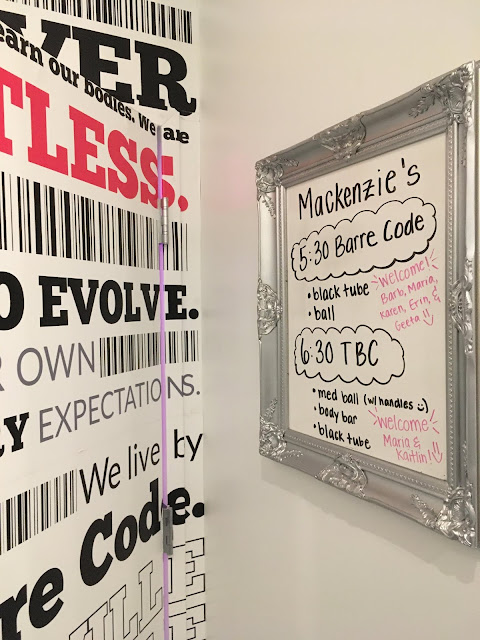 VER
earn our bodies. We are
TLESS.
O EVOLVE.
R OWN
RY EXPECTATIONS.
We live by
re Code.
Mackenzie's
5:30 Barre Code
• black tube
• ball
Welcome!
Barb, Maria,
Karen, Erin, &
Geeta :)
6:30 TBC
• med ball (w/ handles :))
• body bar
• black tube
Welcome
Maria &
Kaitlin! :)